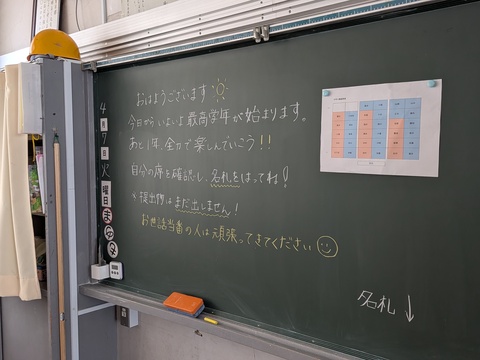 おはようございます
今日からいよいよ最高学年が始まります。
あと1年、全力で楽しんでいこう!!
自分の席を確認し、名札をはってね!
※提出物はまだ出しません!
お世話当番の人は頑張ってきてください
4月7日火曜日
名札↓